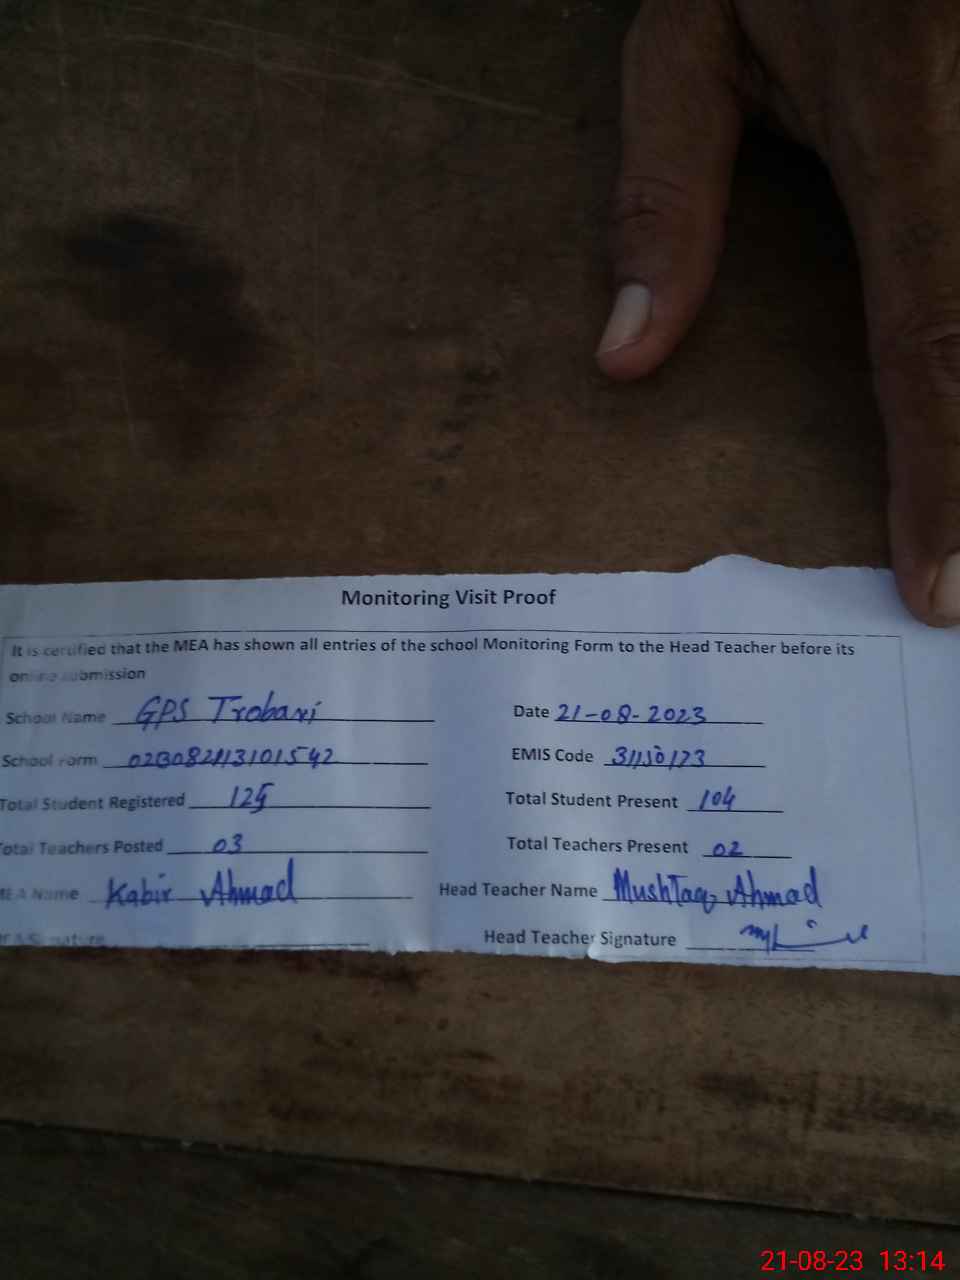 Monitoring Visit Proof
It is certified that the MEA has shown all entries of the school Monitoring Form to the Head Teacher before its
online submission
School Name GPS Trobari Date 21-08-2023
School Form EMIS Code
Total Student Registered 125 Total Student Present 104
Total Teachers Posted 03 Total Teachers Present 02
MEA Name Kabir Ahmad Head Teacher Name Mushtaq Ahmad
MEA Signature Head Teacher Signature
21-08-23 13:14